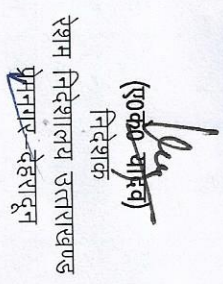 (ए०के० यादव)
निदेशक
रेशम निदेशालय उत्तराखण्ड
प्रेमनगर-देहरादून